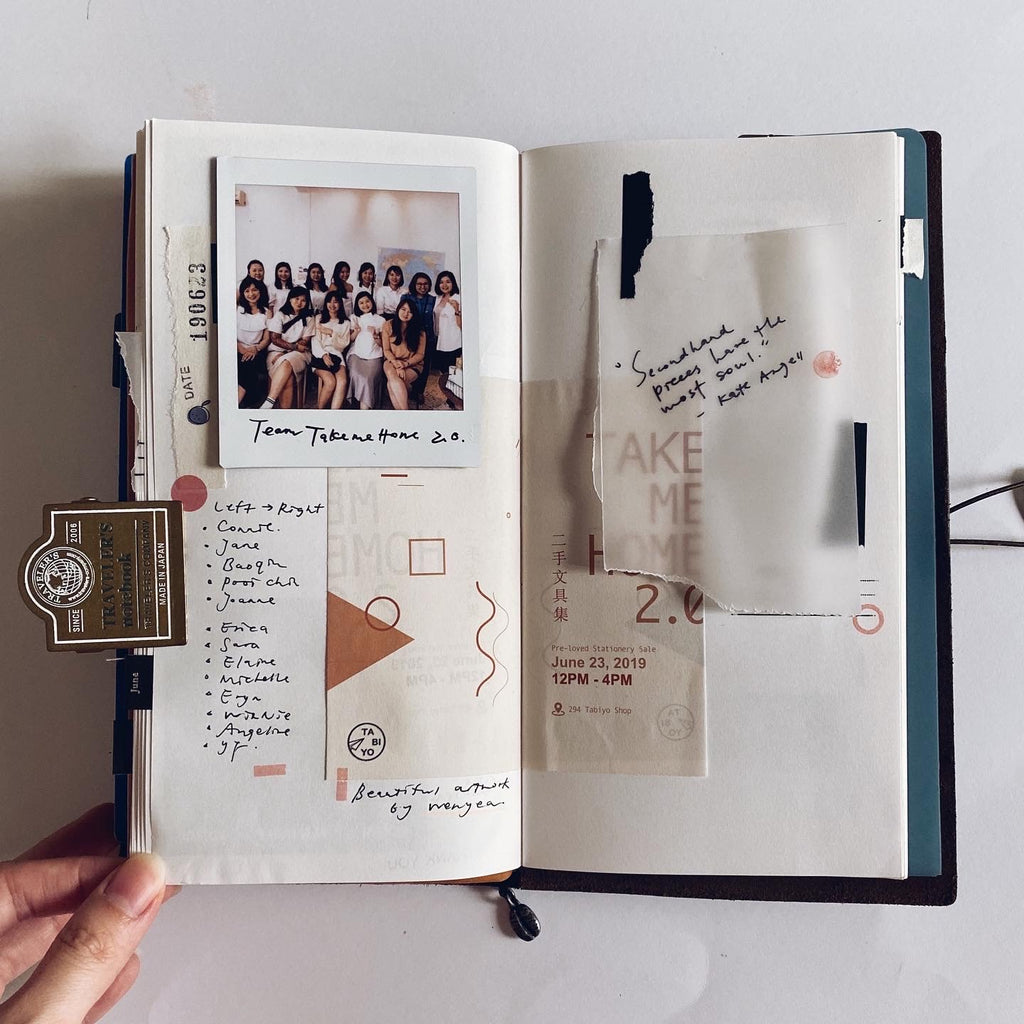 190623
DATE
Team Take me Home 2.0.
Left → Right
• Connie.
• Jane
• Baoqin
• pooi chin
• Joanne
• Erica
• Sara
• Elaine
• Michelle
• Eryn
• Winnie
• Angeline
• YJ.
SINCE 2006
TRAVELER'S
TRAVELER'S
notebook
TRAVELER'S COMPANY
MADE IN JAPAN
June
TA
BI
YO
Beautiful artwork
by wenyea.
"Secondhand
pieces have the
most soul."
- Kate Angell
TAKE
ME
HOME
2.0
二手文具集
Pre-loved Stationery Sale
June 23, 2019
12PM - 4PM
294 Tabiyo Shop